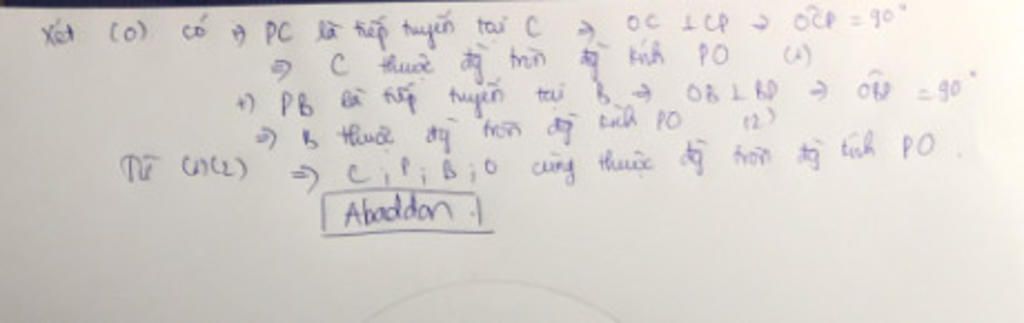 Xét (O) có +) PC là tiếp tuyến tại C => OC ⊥ CP => OCP = 90°
=> C thuộc đg tròn đg kính PO (1)
+) PB là tiếp tuyến tại B => OB ⊥ BP => OBP = 90°
=> B thuộc đg tròn đg kính PO (2)
Từ (1)(2) => C ; P ; B ; O cùng thuộc đg tròn đg kính PO.
Abaddon .